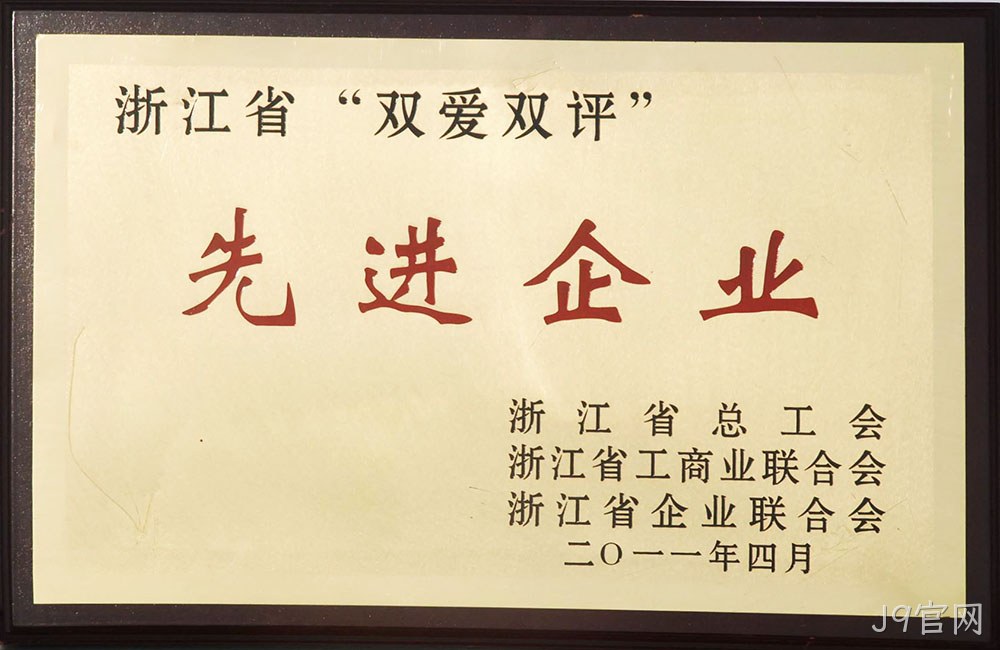 浙江省“双爱双评”
先进企业
浙江省总工会
浙江省工商业联合会
浙江省企业联合会
二〇一一年四月
J9官网